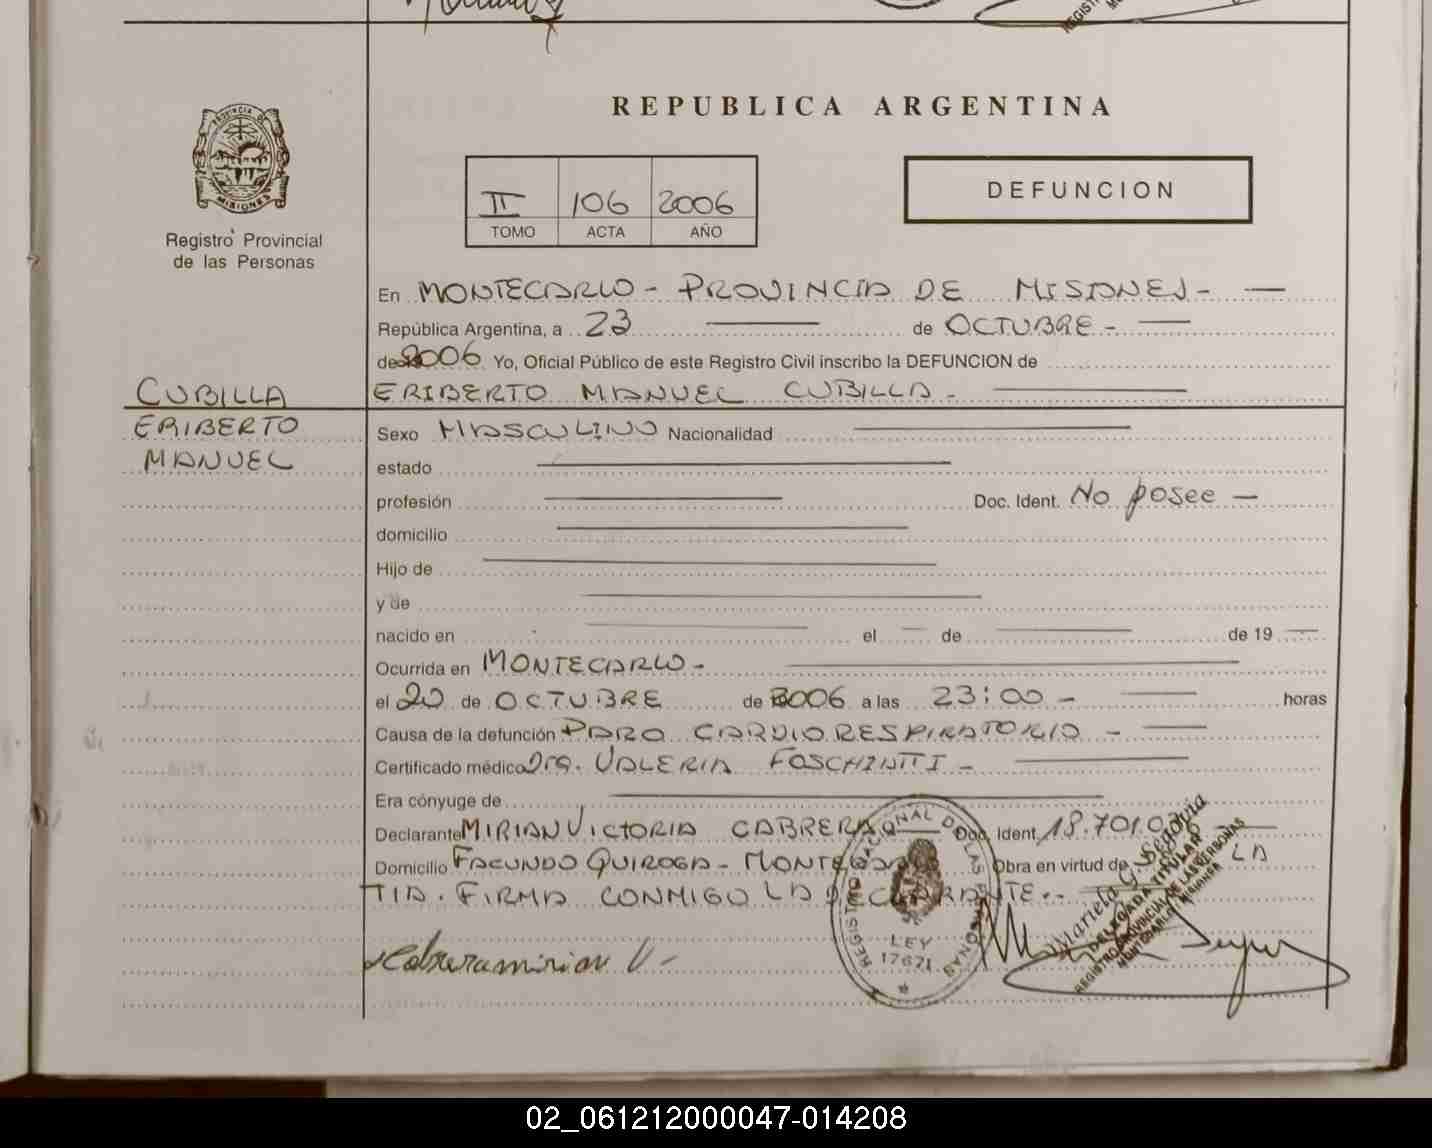 REPUBLICA ARGENTINA
PROVINCIA DE
MISIONES
Registro Provincial
de las Personas
II 106 2006
TOMO ACTA AÑO
DEFUNCION
En MONTECARLO - PROVINCIA DE MISIONES -
República Argentina, a 23 de OCTUBRE -
de 2006 Yo, Oficial Público de este Registro Civil inscribo la DEFUNCION de
CUBILLA
ERIBERTO MANUEL CUBILLA -
ERIBERTO
MANUEL
Sexo MASCULINO Nacionalidad
estado
profesión Doc. Ident. No posee -
domicilio
Hijo de
y de
nacido en el de de 19
Ocurrida en MONTECARLO -
el 20 de OCTUBRE de 2006 a las 23:00 - horas
Causa de la defunción PARO CARDIORESPIRATORIO -
Certificado médico Dra. VALERIA -
Era cónyuge de
Declarante MIRIAN VICTORIA CABRERA Doc. Ident.
Domicilio FACUNDO QUIROGA - MONTECARLO Obra en virtud de LA
TIA. FIRMA CONMIGO LA DECLARANTE.-
Cabrera mirian V-
REGISTRO NACIONAL DE LAS PERSONAS
LEY
17671
Mariela G. Segovia
DELEGADA TITULAR
REGISTRO PROVINCIAL DE LAS PERSONAS
MONTECARLO MISIONES
02_061212000047-014208